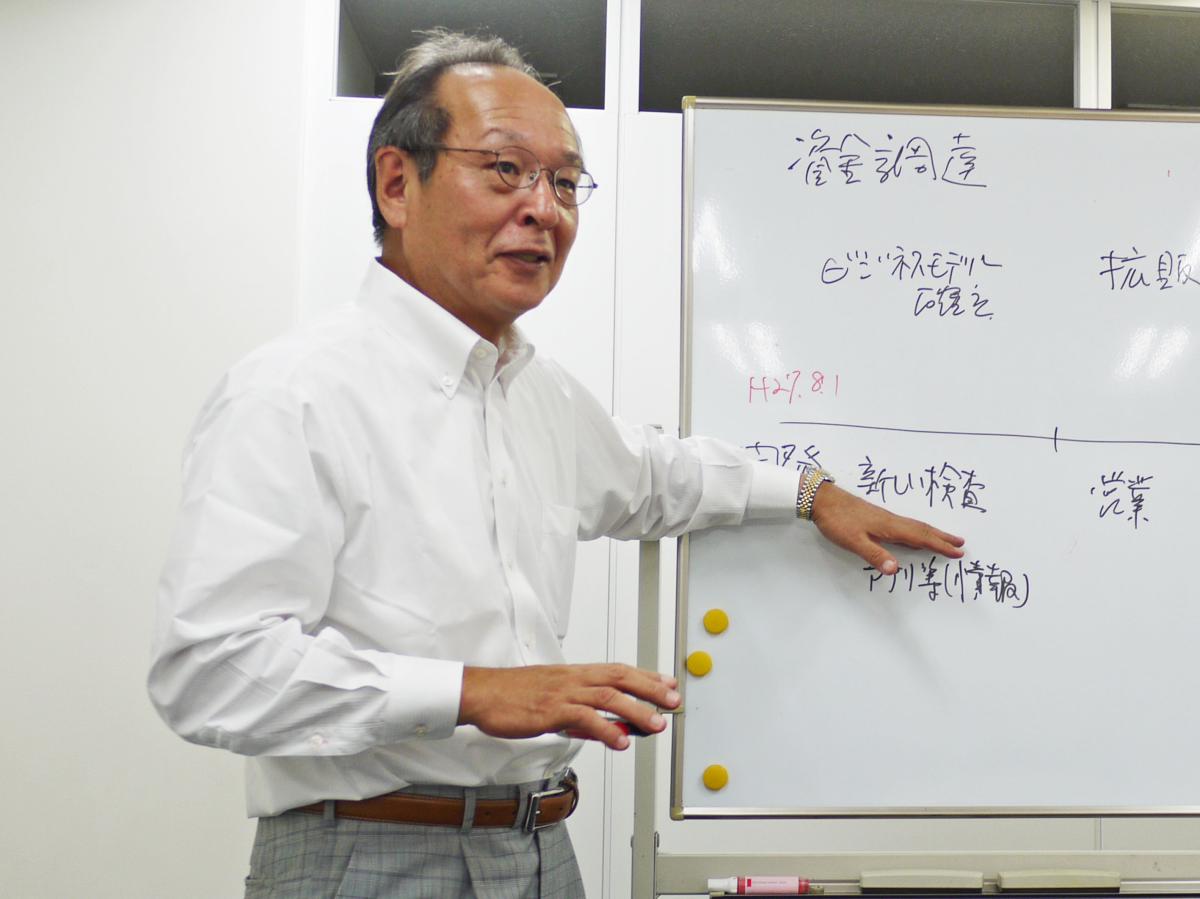 資金調達
ビジネスモデル 拡販
確立
H27.8.1
新しい検査 営業
アプリ等(情報)